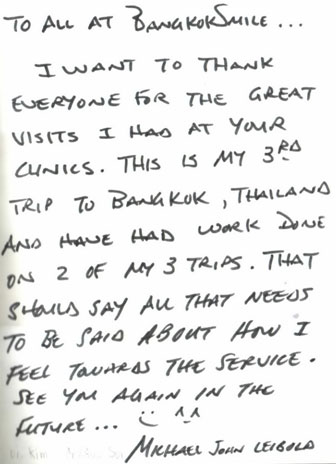 TO ALL AT BANGKOKSMILE...
I WANT TO THANK
EVERYONE FOR THE GREAT
VISITS I HAD AT YOUR
CLINICS. THIS IS MY 3RD
TRIP TO BANGKOK, THAILAND
AND HAVE HAD WORK DONE
ON 2 OF MY 3 TRIPS. THAT
SHOULD SAY ALL THAT NEEDS
TO BE SAID ABOUT HOW I
FEEL TOWARDS THE SERVICE.
SEE YOU AGAIN IN THE
FUTURE... :) ^^
MICHAEL JOHN LEIBOLD